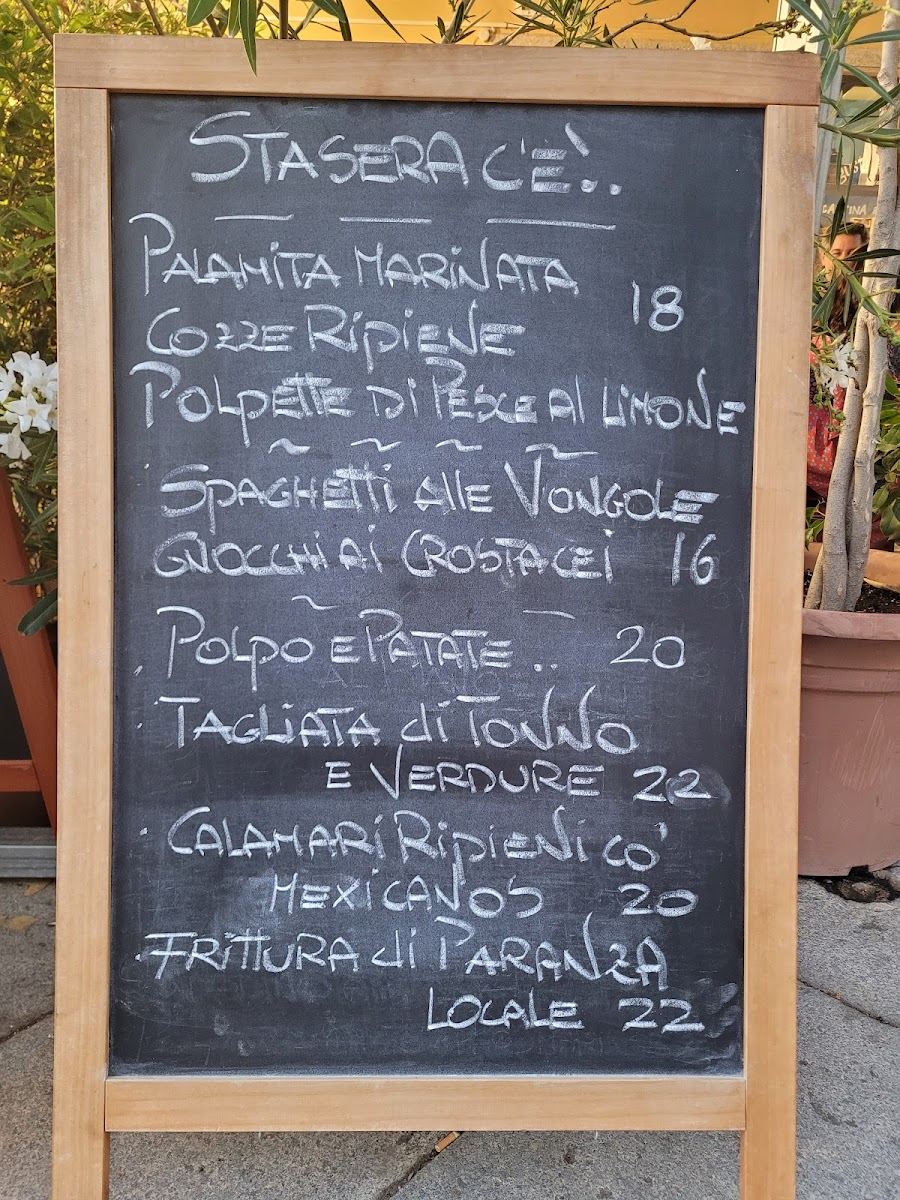 STASERA C'È..
PALAMITA MARINATA
18
COZZE RIPIENE
POLPETTE DI PESCE AL LIMONE
SPAGHETTI ALLE VONGOLE
GNOCCHI AI CROSTACEI 16
POLPO E PATATE .. 20
TAGLIATA di TONNO
E VERDURE 22
CALAMARI RIPIENI CO'
MEXICANOS 20
FRITTURA di PARANZA
LOCALE 22